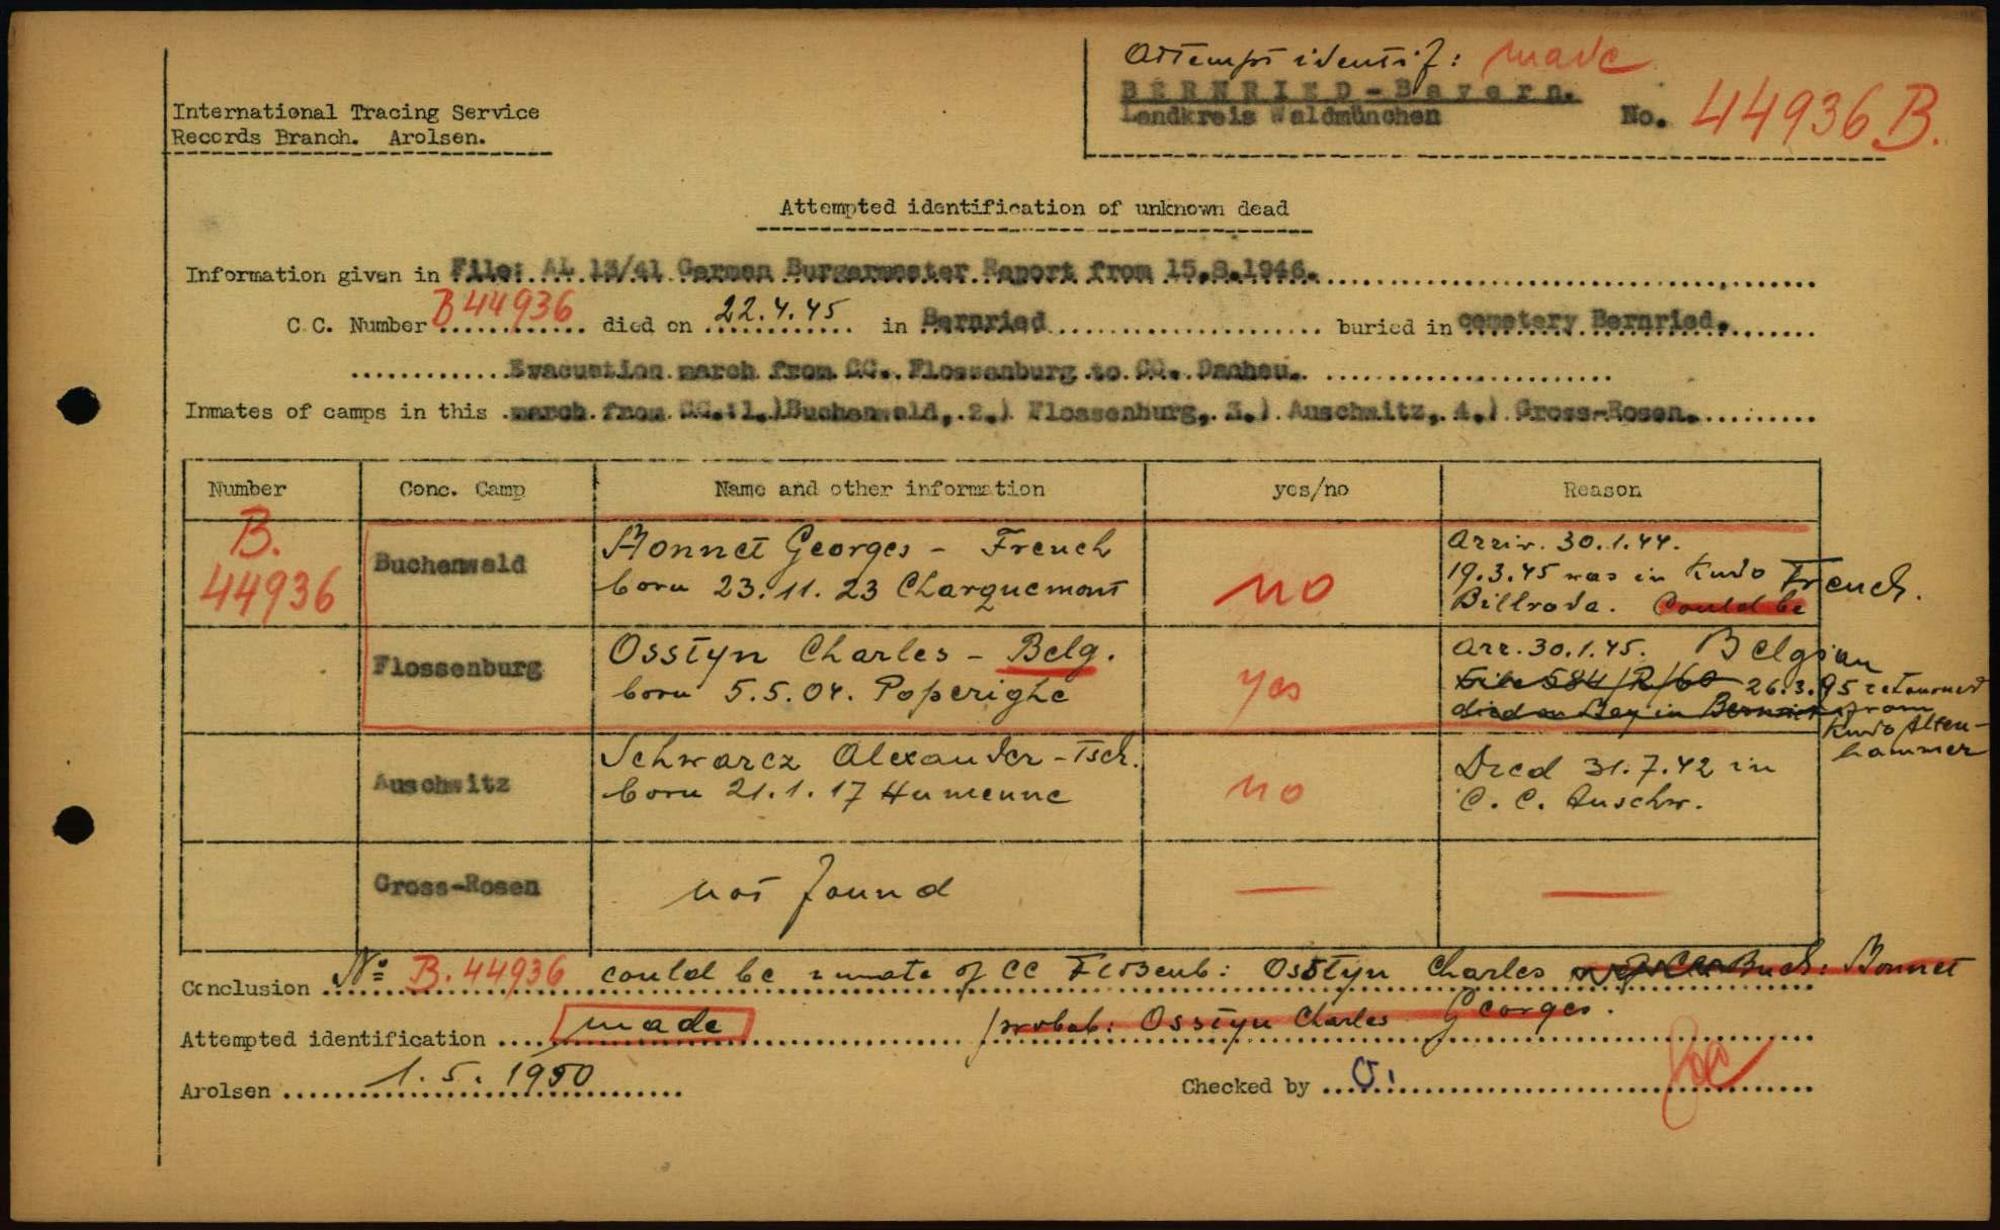 Attempt identif: made
BERNRIED-Bayern.
Landkreis Waldmünchen
No. 44936 B.
International Tracing Service
Records Branch. Arolsen.
Attempted identification of unknown dead
Information given in File: AL 13/41 German Burgermester Raport from 15.8.1946.
C.C. Number B 44936 died on 22.4.45 in Bernried buried in cemetery Bernried.
Evacuation march from CC. Flossenburg to CC. Dachau.
Inmates of camps in this march from CC.:1.)Buchenwald, 2.) Flossenburg, 3.) Auschwitz, 4.) Gross-Rosen.
Number Conc. Camp Name and other information yes/no Reason
B. 44936
Buchenwald
Monnet Georges - French
born 23.11.23 Charquemont
no
Arriv. 30.1.44.
19.3.45 was in Kmdo French.
Billroda. Could be
Flossenburg
Osstyn Charles - Belg.
born 5.5.04. Poperighe
yes
Arr. 30.1.45. Belgian
File 584/R/60 26.3.45 retourned
died on Bay in from
Kmdo Alten-
hammer
Auschwitz
Schwarcz Alexander - Tsch.
born 21.1.17 Humenne
no
Died 31.7.42 in
C. C. Auschw.
Gross-Rosen
not found
Conclusion No B. 44936 could be inmate of CC Flossenb: Osstyn Charles Buch: Monnet
Georges.
Attempted identification made probab: Osstyn Charles
Arolsen 1.5.1950
Checked by